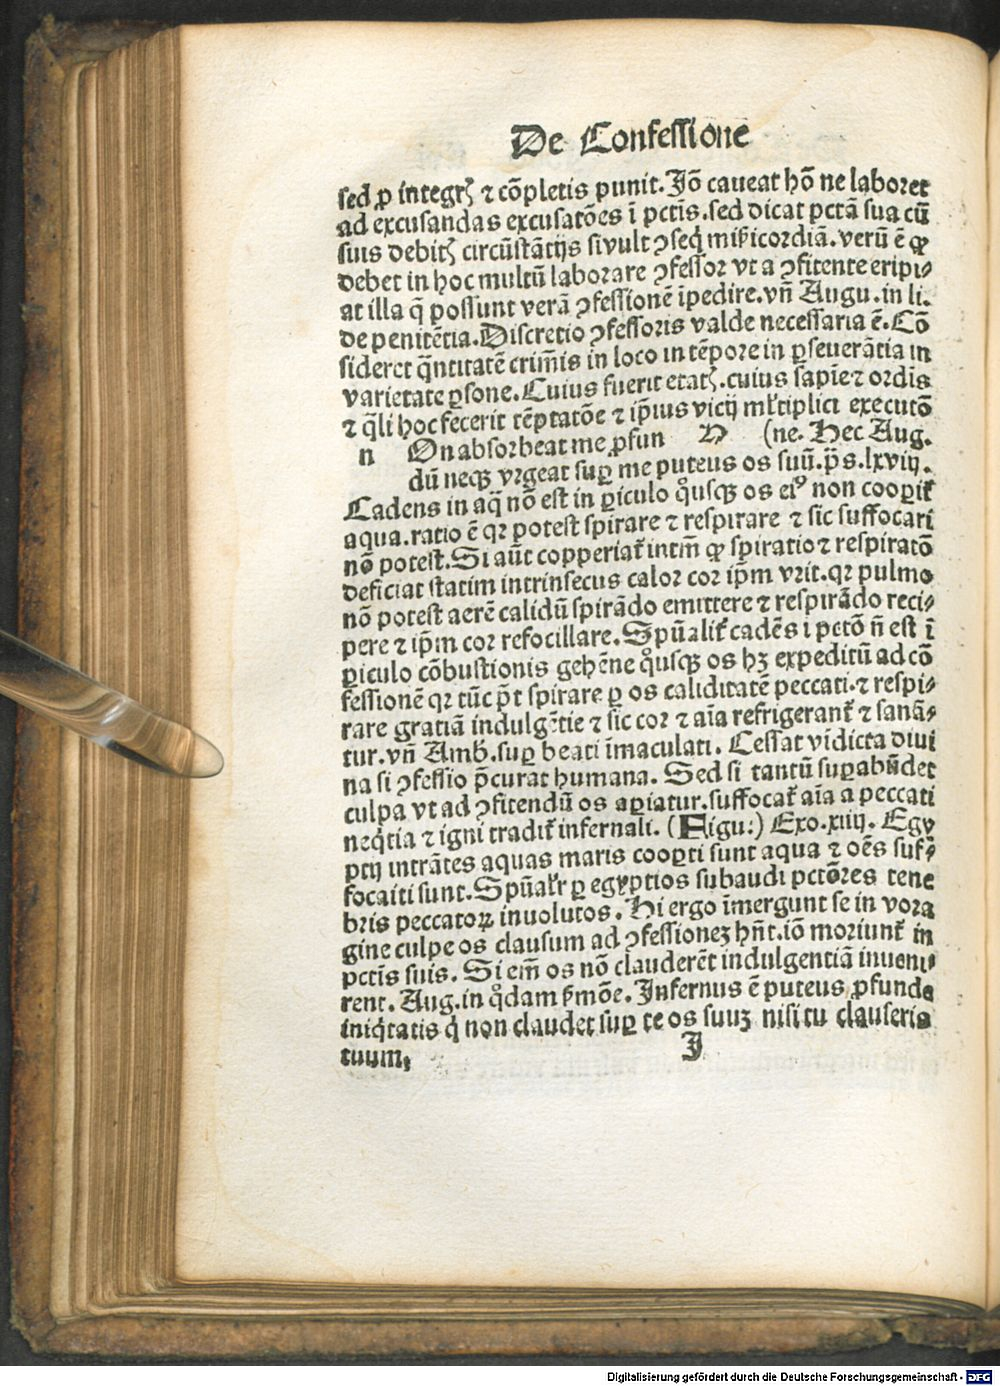 De Confessione
sed ꝓ integrꝭ ⁊ cōpletis punit. Jō caueat hō ne laboret
ad excusandas excusatōes ī pctīs. sed dicat pctā sua cū
suis debitꝭ circūstātijs si vult ꝯseq̄ mīicordiā. verū ē ꝙ
debet in hoc multū laborare ꝯfessor vt a ꝯfitente eripi⸗
at illa q̄ possunt verā ꝯfessionē īpedire. vñ Augu. in li.
de penitētia. Discretio ꝯfessoris valde necessaria ē. Cō
sideret q̄ntitatē crim̄is in loco in tēpore in ꝑseuerātia in
varietate ꝑsone. Cuius fuerit etatꝭ. cuius sapīe ⁊ ordīs
⁊ q̄li hoc fecerit tēptatōe ⁊ ip̄ius vicij ml̓tiplici executō
n On absorbeat me ꝓfun N (ne. Hec Aug.
dū neqꝫ vrgeat suꝑ me puteus os suū. p̄s. lxviij.
Cadens in aq̄ nō est in ꝑiculo qͦusqꝫ os eiꝰ non cooꝑit̉
aqua. ratio ē qꝛ potest spirare ⁊ respirare ⁊ sic suffocari
nō potest. Si aūt copperiat̉ intm̄ ꝙ spiratio ⁊ respiratō
deficiat statim intrinsecus calor cor ip̄m vrit. qꝛ pulmo
nō potest aerē calidū spirādo emittere ⁊ respirādo reci⸗
pere ⁊ ip̄m cor refocillare. Spūalit̉ cadēs ī pctō ñ est ī
ꝑiculo cōbustionis gehēne qͦusqꝫ os hꝫ expeditū ad cō
fessionē qꝛ tūc p̄t spirare ꝑ os caliditatē peccati. ⁊ respi⸗
rare gratiā indulgētie ⁊ sic cor ⁊ aīa refrigerant̉ ⁊ sanā⸗
tur. vñ Amb̄. suꝑ beati īmaculati. Cessat vīdicta diui
na si ꝯfessio p̄curat humana. Sed si tantū suꝑabūdet
culpa vt ad ꝯfitendū os aꝑiatur. suffocat̉ aīa a peccati
neq̄tia ⁊ igni tradit̉ infernali. (Figu:) Exo. xiiij. Egy
ptij intrātes aquas maris cooꝑti sunt aqua ⁊ oēs suf⸗
focaiti sunt. Spūal̓r ꝑ egyptios subaudi pctōres tene
bris peccatoꝝ inuolutos. Hi ergo īmergunt se in vora
gine culpe os clausum ad ꝯfessionez hñt. iō moriunt̉ in
pctīs suis. Si em̄ os nō clauderēt indulgentiā inueni⸗
rent. Aug. in qͦdam p̄mōe. Infernus ē puteus ꝓfunde
iniq̄tatis q̄ non claudet suꝑ te os suuꝫ nisi tu clauseris
tuum;
J
Digitalisierung gefördert durch die Deutsche Forschungsgemeinschaft - DFG